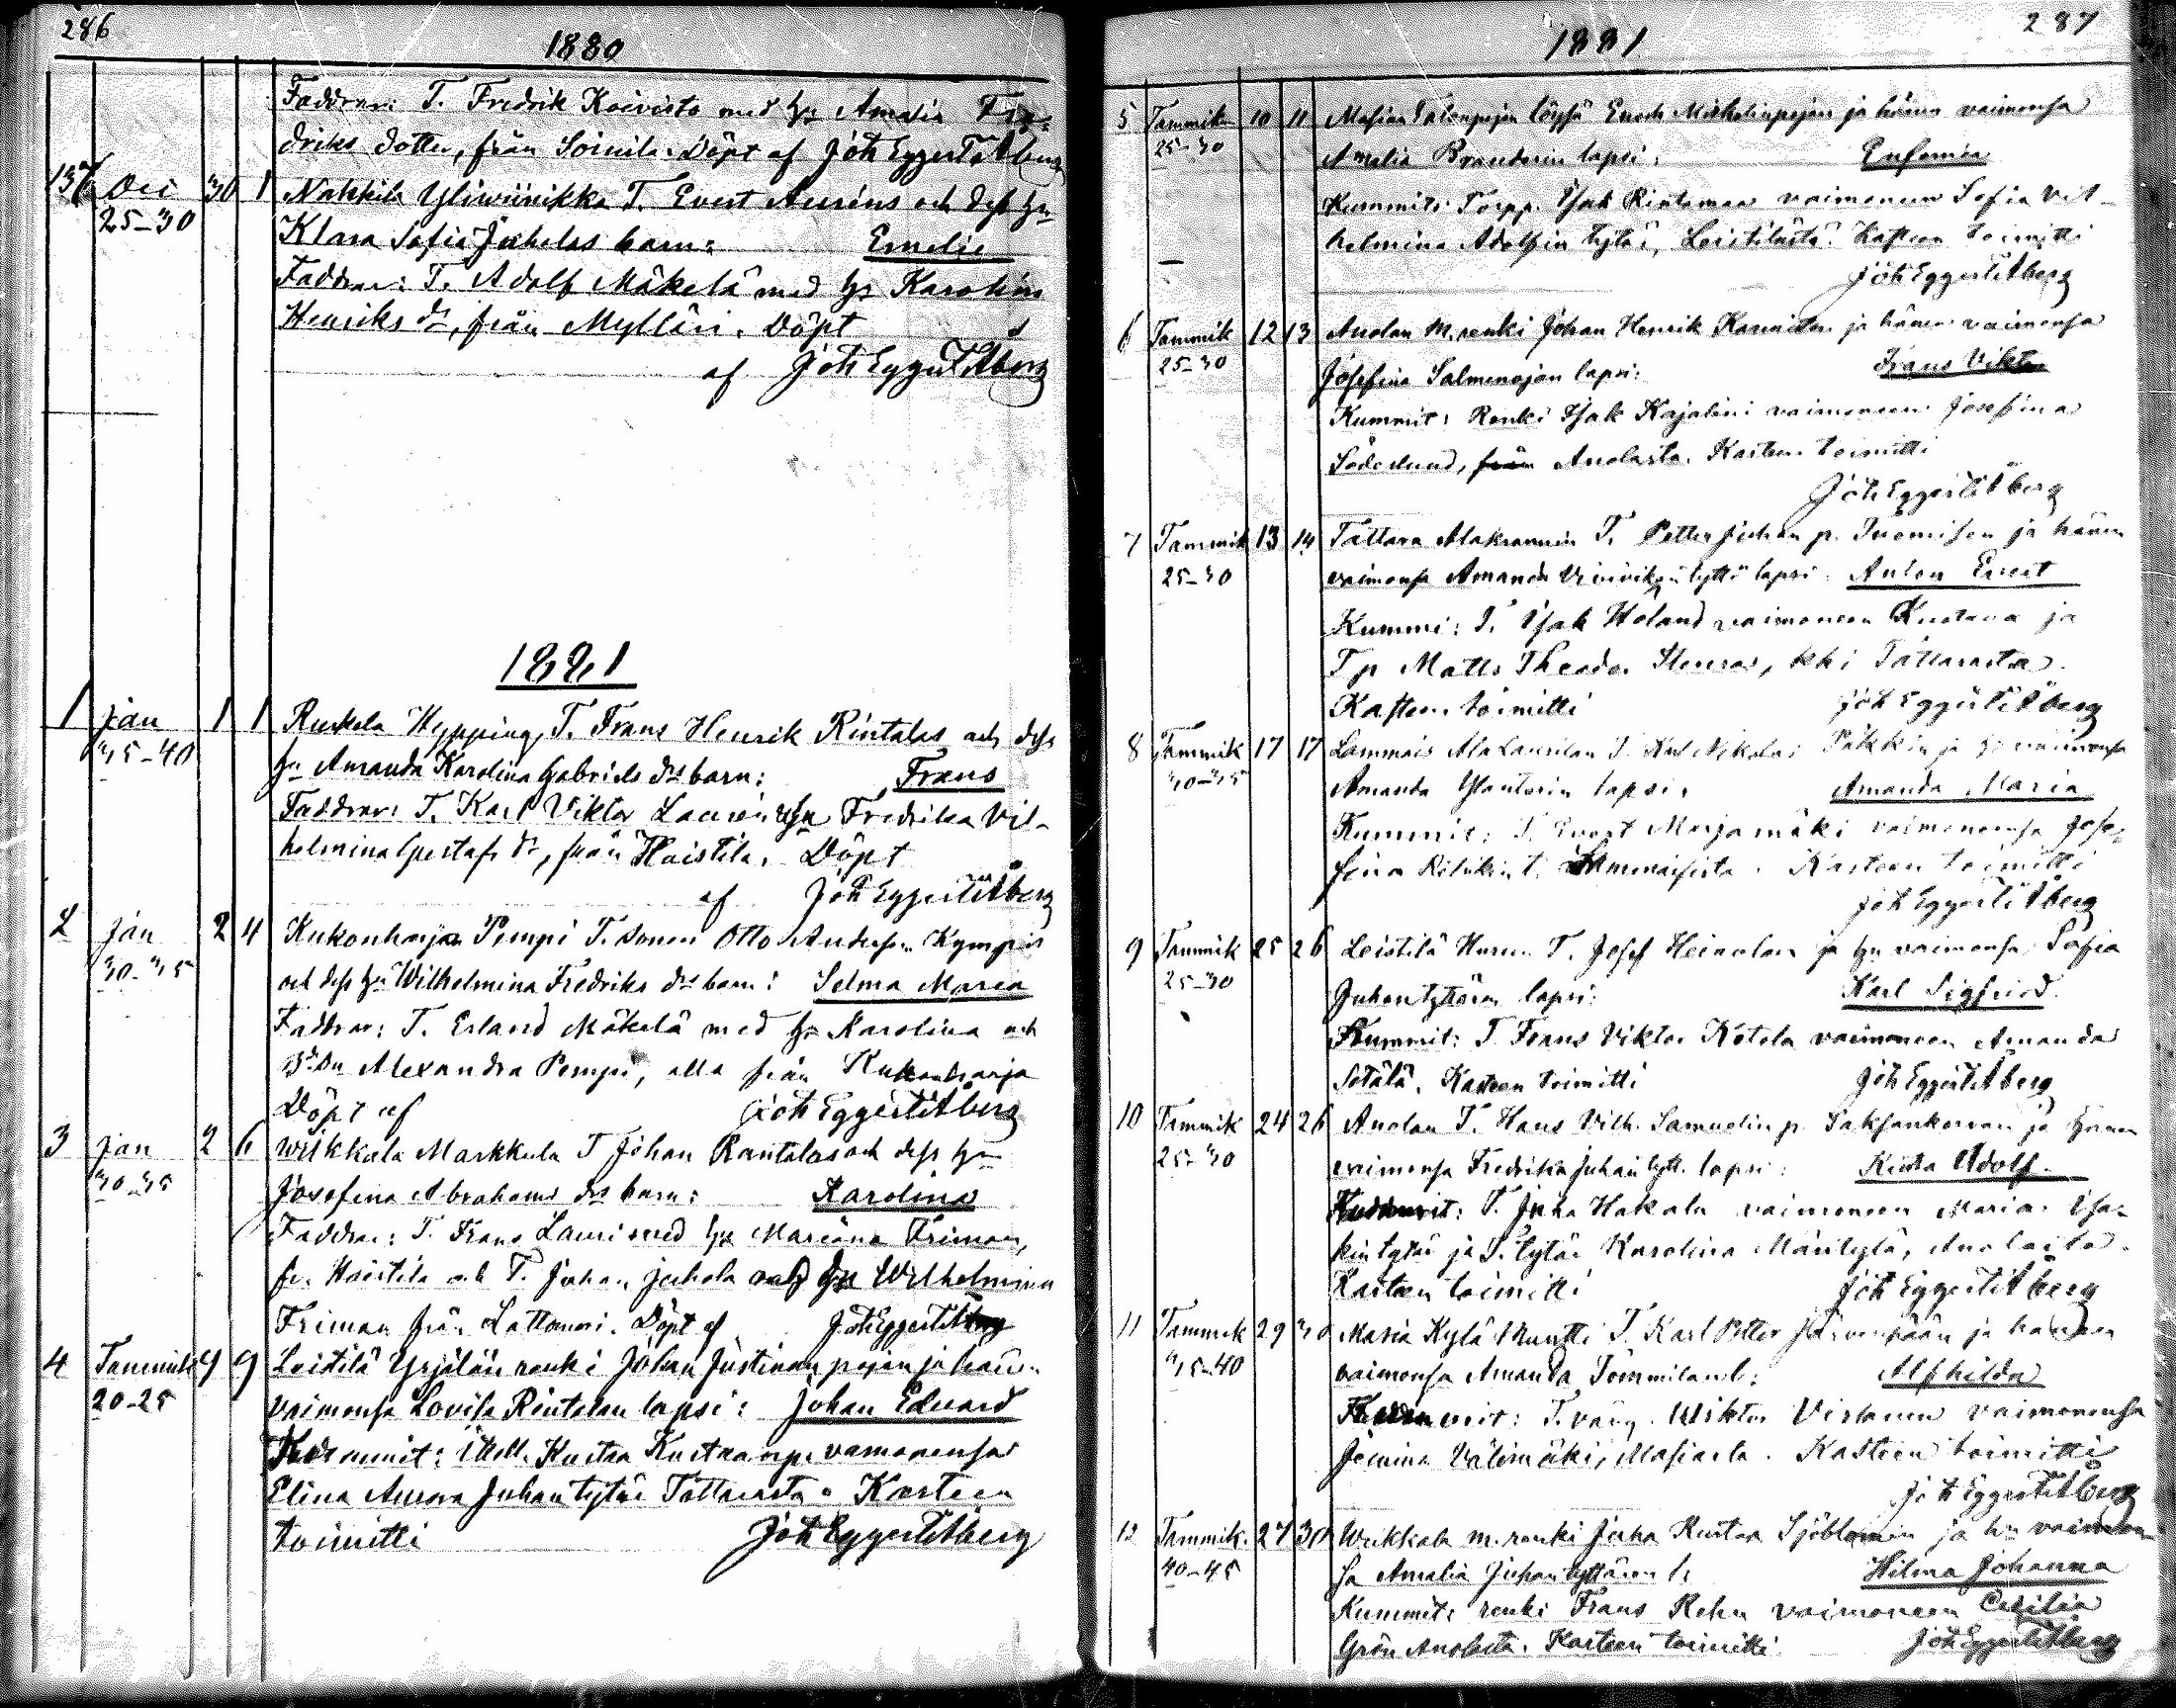 286
1880
Faddrar: T. Fredrik Koivisto med h:u Amalia Fre-
driks dotter, från Soinila. Döpt af Joh Eggert Åberg
136 Dec 30 1 Nakkila Yliwiinikka T. Evert Auréns och dess h:u
25-30 Klara Sofia Juhelas barn: Emelie
Faddrar: T. Adolf Mäkelä med h:u Karolina
Henriks dr, från Mylläri. Döpt
af Joh Eggert Åberg
1881
1 Jan 1 1 Ruskela Hypping T. Frans Henrik Rintalas och dess
35-40 h:u Amanda Karolina Gabriels drs barn: Frans
Faddrar: T. Karl Viktor Laurén h:u Fredrika Vil-
helmina Gustafs dr, från Haistila. Döpt
af Joh Eggert Åberg
2 Jan 2 4 Kukonharja Pempi T. sonen Otto Anderss. Kympis
30-35 och dess h:u Wilhelmina Fredriks drs barn: Selma Maria
Faddrar: T. Erland Mäkelä med h:u Karolina och
Alexandra Pempi, alla från Kukonharja
Döpt af Joh Eggert Åberg
3 Jan 2 6 Wilkkala Markkula T Johan Rantalas och dess h:u
30-35 Josefina Abrahams drs barn: Karolina
Faddrar: T. Frans Lauri med h:u Mariana Friman,
fr. Haistila och T. Johan Juhola med h:u Wilhelmina
Friman från Lattomeri. Döpt af Joh Eggert Åberg
4 Tammik 9 9 Leistilä Yrjälän renki Johan Justinan pojan ja hän.
20-25 vaimonsa Lovisa Rintalan lapsi: Johan Edvard
Kummit: Kustaa Kustaanp. vaimonensa
Elina Aurora Juhantytär Tattarasta. Kasteen
toimitti Joh Eggert Åberg
287
1881
5 Tammik 10 11 Masian Talonpojan Enoch Mickelinpojan ja hänen vaimonsa
25-30 Amalia Branderin lapsi: Eufemia
Kummit: Torpp. Isak Rintamaa vaimoneen Sofia Vil-
helmina Adolfin tytär, Leistilästä. Kasteen toimitti
Joh Eggert Åberg
6 Tammik 12 13 Anolan m. renki Johan Henrik Kanniston ja hänen vaimonsa
25-30 Josefina Salmenojan lapsi: Frans Viktor
Kummit: Renki Isak Kajalini vaimoneen Josefina
Söderlund, från Anolasta. Kasteen toimitti
Joh Eggert Åberg
7 Tammik 13 14 Tattara Alakrannin T. Petter Juhan p. Tuomisen ja hänen
25-30 vaimonsa Amanda lapsi: Anton Evert
Kummi: T. Isak Holand vaimoneen Kustava ja
T p Matts Theodor Stenroos, kki Tattarasta.
Kasteen toimitti Joh Eggert Åberg
8 Tammik 17 17 Lammais Ala Laurilan T. Karl Nikolai Päkkin ja h:n vaimonsa
30-35 Amanda lapsi: Amanda Maria
Kummit: T. Evert Marjamäki vaimonensa Jose-
fina Lammaisista. Kasteen toimitti
Joh Eggert Åberg
9 Tammik 25 26 Leistilä T. Josef Heinolan ja h:n vaimonsa Sofia
25-30 Juhantyttären lapsi: Karl Sigfrid
Kummit: T. Frans Viktor Kotola vaimoneen Amanda
Sotala. Kasteen toimitti Joh Eggert Åberg
10 Tammik 24 26 Anolan T. Hans Vilh. Samuelin p. Saksankorvan ja hänen
25-30 vaimonsa Fredrika Juhan tytt. lapsi: Kustaa Adolf
Kummit: T. Juha Hakala vaimoneen Maria Isa-
kin tytär ja T. tytär Karolina Mäntylä, Anolasta.
Kasteen toimitti Joh Eggert Åberg
11 Tammik 29 30 Masia Kylä Muntti T. Karl Petter Järvenpään ja hänen
35-40 vaimonsa Amanda Tommilan l: Alfhilda
Kummit: T. väng. Wiktor Virtanen vaimonensa
Jemina Välimäki, Masiasta. Kasteen toimitti
Joh Eggert Åberg
12 Tammik. 27 30 Wiikkala m. renki Juha Kustaa Sjöblomin ja h:n vaimon-
40-45 sa Amalia Juhantyttären l: Hilma Johanna
Kummit: renki Frans Rehn vaimoneen Cecilia
Grön Anolasta. Kasteen toimitti Joh Eggert Åberg